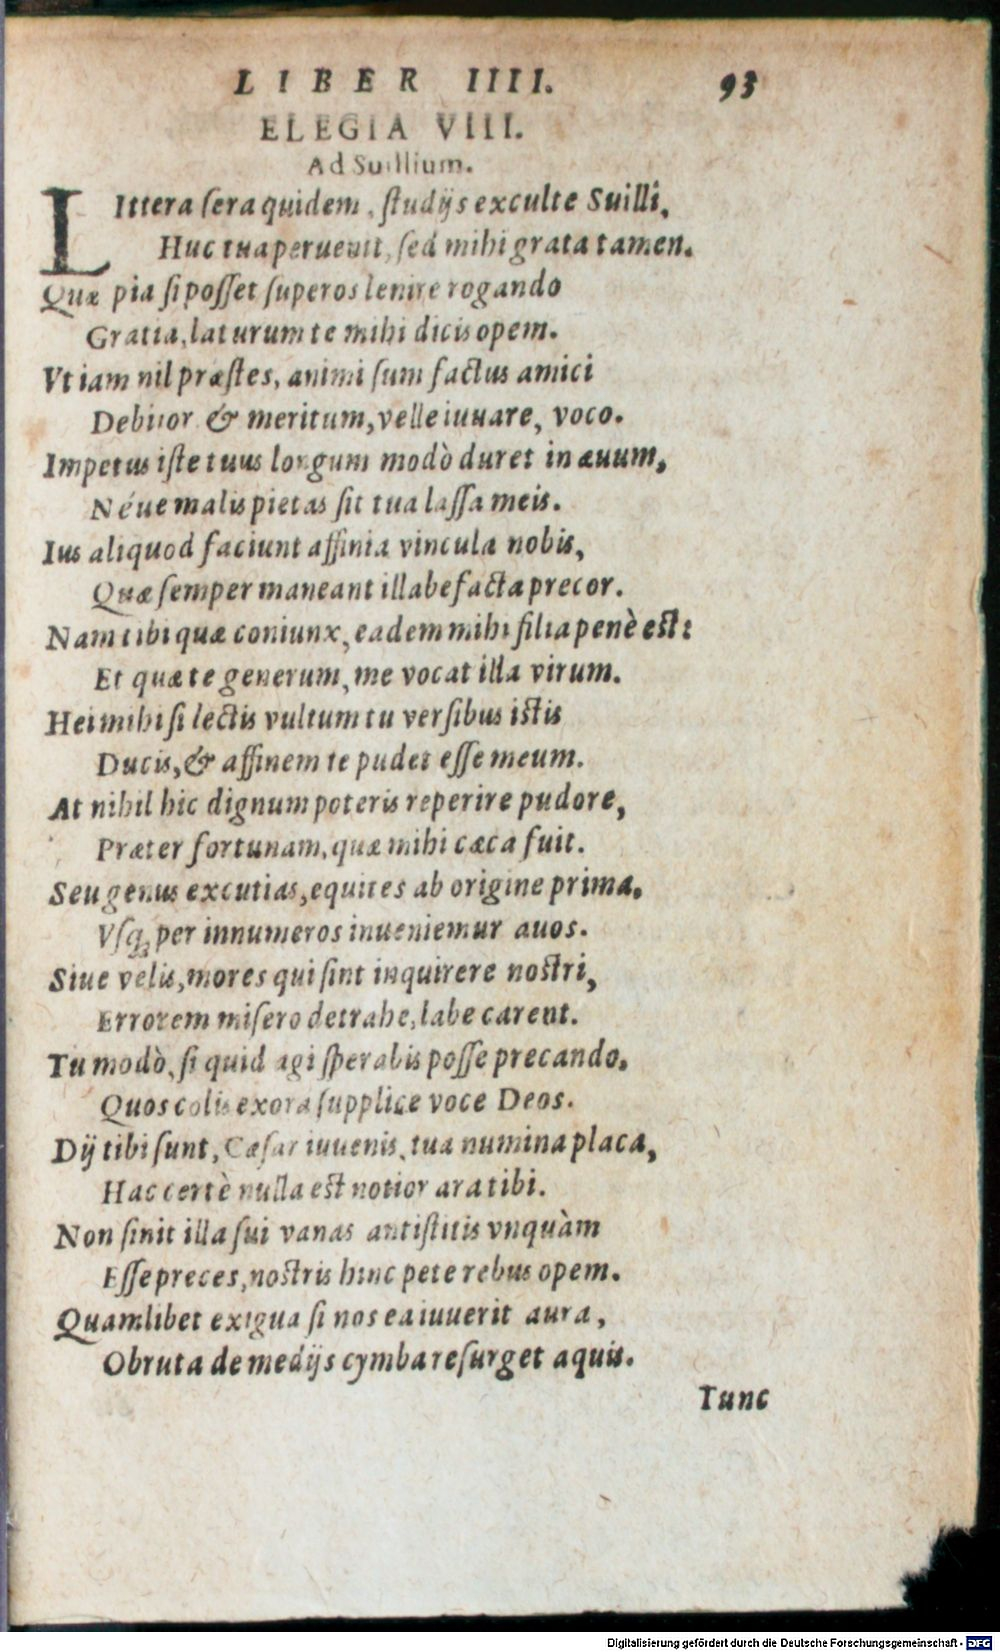 LIBER IIII. 93
ELEGIA VIII.
Ad Suillium.
LIttera sera quidem, studijs exculte Suilli,
Huc tua peruenit, sed mihi grata tamen.
Quæ pia si posset superos lenire rogando
Gratia, laturum te mihi dicis opem.
Vt iam nil præstes, animi sum factus amici
Debitor & meritum, velle iuuare, voco.
Impetus iste tuus longum modò duret in æuum,
Néue malis pietas sit tua lassa meis.
Ius aliquod faciunt affinia vincula nobis,
Quæ semper maneant illabefacta precor.
Nam tibi quæ coniunx, eadem mihi filia penè est:
Et quæ te generum, me vocat illa virum.
Hei mihi si lectis vultum tu versibus istis
Ducis, & affinem te pudet esse meum.
At nihil hic dignum poteris reperire pudore,
Præter fortunam, quæ mihi cæca fuit.
Seu genus excutias, equites ab origine prima,
Vsq; per innumeros inueniemur auos.
Siue velis, mores qui sint inquirere nostri,
Errorem misero detrahe, labe carent.
Tu modò, si quid agi sperabis posse precando,
Quos colis exora supplice voce Deos.
Dij tibi sunt, Cæsar iuuenis, tua numina placa,
Hac certè nulla est notior ara tibi.
Non sinit illa sui vanas antistitis vnquàm
Esse preces, nostris hinc pete rebus opem.
Quamlibet exigua si nos ea iuuerit aura,
Obruta de medijs cymba resurget aquis.
Tunc
Digitalisierung gefördert durch die Deutsche Forschungsgemeinschaft - DFG